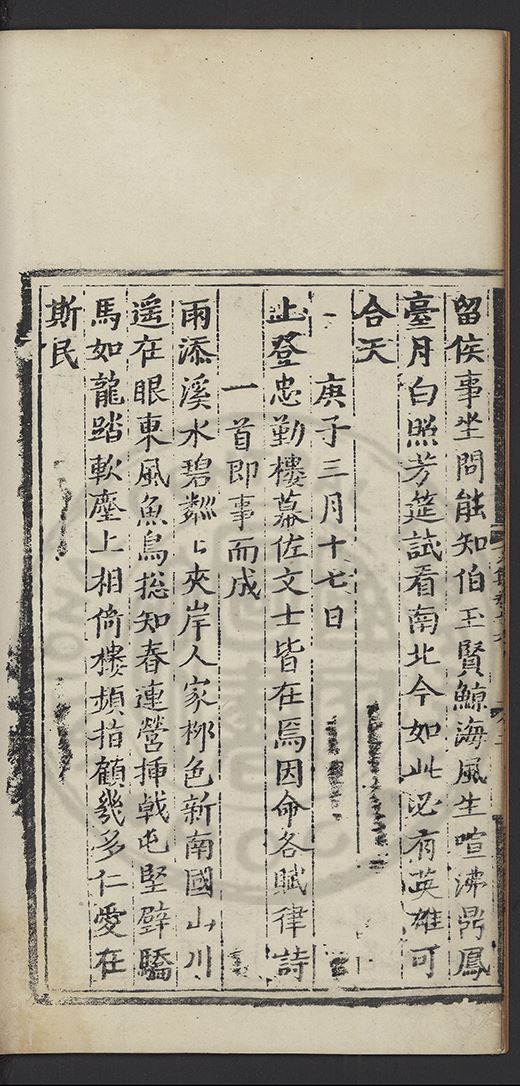 留侯事坐間能知伯王賢鯨海風生喧沸𪔂鳳
臺月白照芳筵試看南北今如此必有英雄可
合天
庚子三月十七日
上登忠勤樓幕佐文士皆在焉因命各賦律詩
一首即事而成
雨添溪水碧粼〻夾岸人家柳色新南國山川
遥在眼東風魚鳥捴知春連營挿戟屯堅壁驕
馬如龍踏軟塵上相倚樓頻指顧幾多仁愛在
斯民